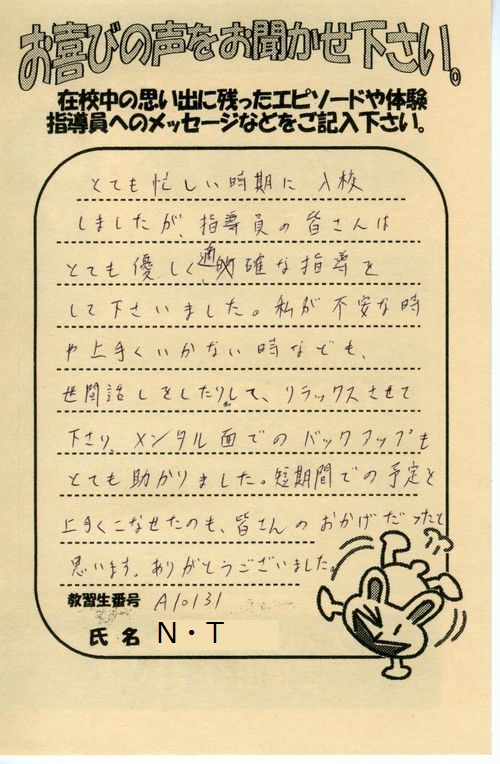 お喜びの声をお聞かせ下さい。
在校中の思い出に残ったエピソードや体験
指導員へのメッセージなどをご記入下さい。
とても忙しい時期に入校
しましたが、指導員の皆さんは
とても優しく適確な指導を
して下さいました。私が不安な時
や上手くいかない時なども、
世間話しをしたりして、リラックスさせて
下さり、メンタル面でのバックアップも
とても助かりました。短期間での予定を
上手くこなせたのも、皆さんのおかげだったと
思います。ありがとうございました。
教習生番号 A10131
氏名 N・T